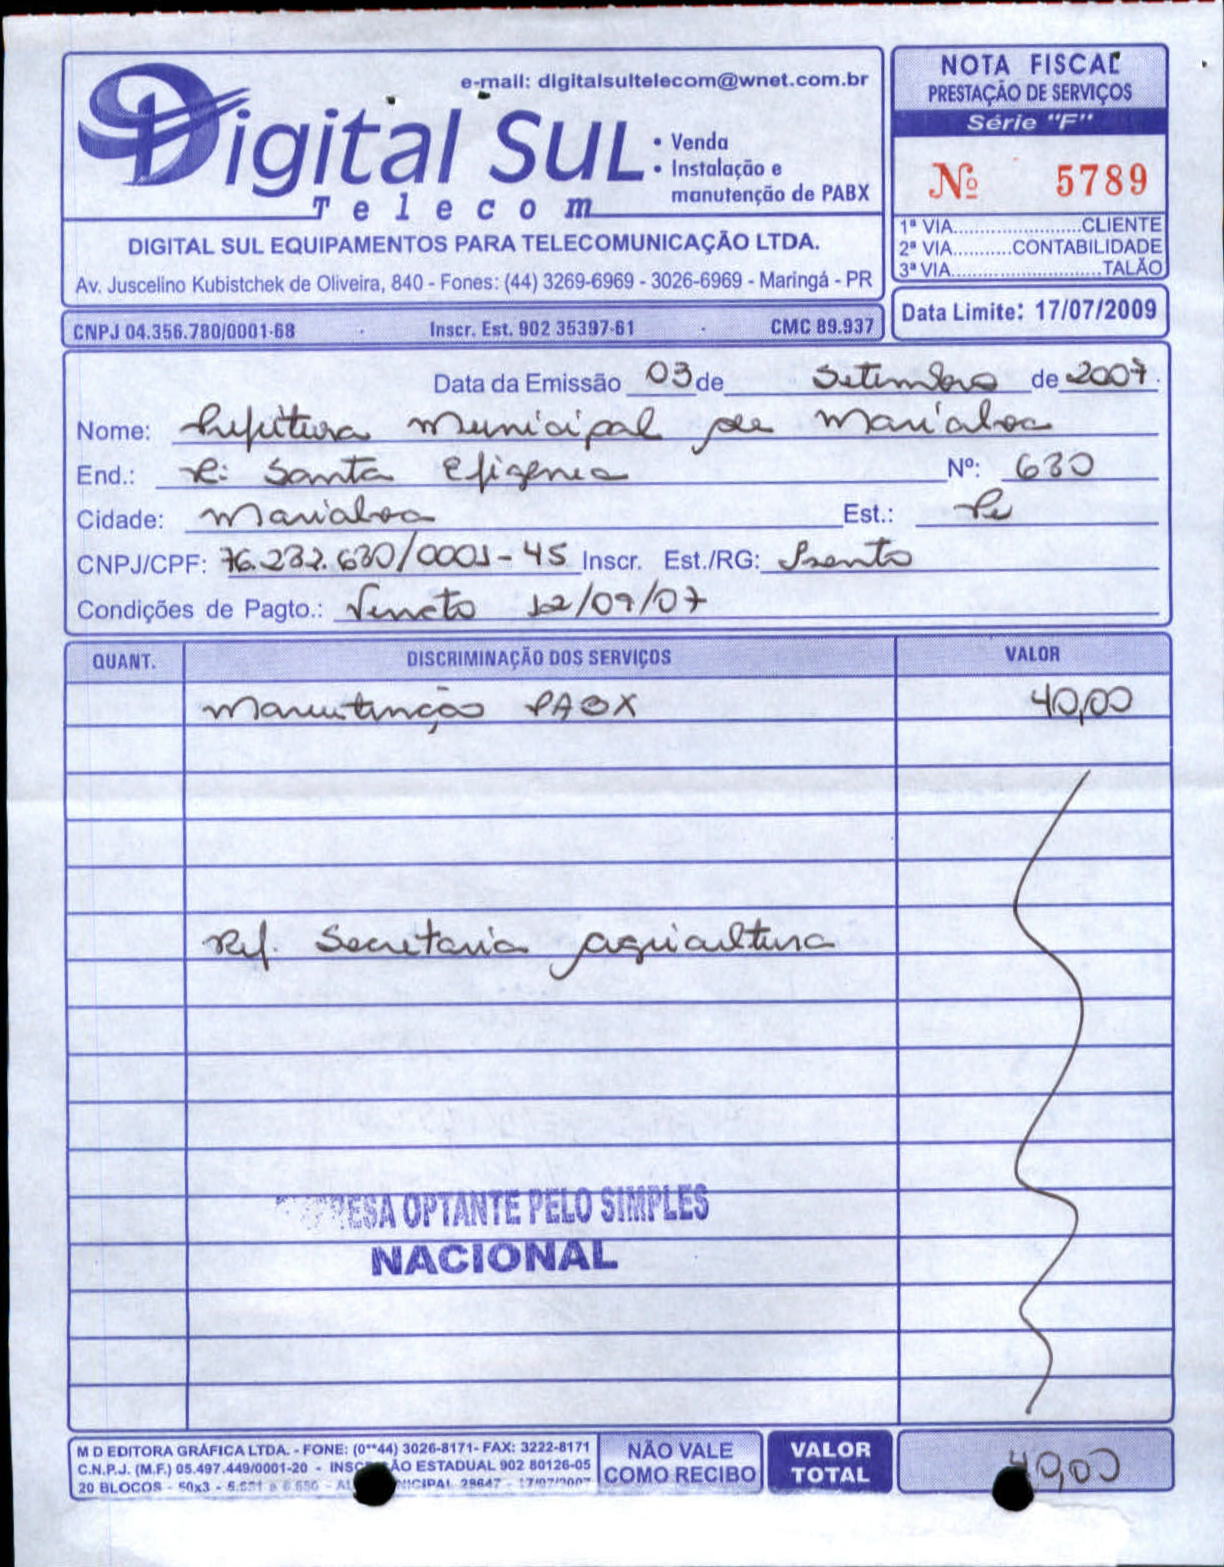 e-mail: digitalsultelecom@wnet.com.br
Digital Sul
Telecom
• Venda
• Instalação e
manutenção de PABX
DIGITAL SUL EQUIPAMENTOS PARA TELECOMUNICAÇÃO LTDA.
Av. Juscelino Kubistchek de Oliveira, 840 - Fones: (44) 3269-6969 - 3026-6969 - Maringá - PR
CNPJ 04.356.780/0001-68 Inscr. Est. 902 35397-61 CMC 89.937
NOTA FISCAL
PRESTAÇÃO DE SERVIÇOS
Série "F"
Nº 5789
1ª VIA........................CLIENTE
2ª VIA...........CONTABILIDADE
3ª VIA............................TALÃO
Data Limite: 17/07/2009
Data da Emissão 03 de Setembro de 2007.
Nome: Prefeitura Municipal de Marialva
End.: R: Santa Efigenia Nº: 680
Cidade: Marialva Est.: Pr
CNPJ/CPF: 76.282.680/0001-45 Inscr. Est./RG: Isento
Condições de Pagto.: Vencto 12/09/07
QUANT. DISCRIMINAÇÃO DOS SERVIÇOS VALOR
Manutenção PABX 40,00
Ref. Secretaria agricultura
RESA OPTANTE PELO SIMPLES
NACIONAL
M D EDITORA GRÁFICA LTDA. - FONE: (0**44) 3026-8171- FAX: 3222-8171
C.N.P.J. (M.F.) 05.497.449/0001-20 - INSC ÃO ESTADUAL 902 80126-05
20 BLOCOS - 50x3 - ICIPAL 28647 - 17/07/2007
NÃO VALE
COMO RECIBO
VALOR
TOTAL
40,00